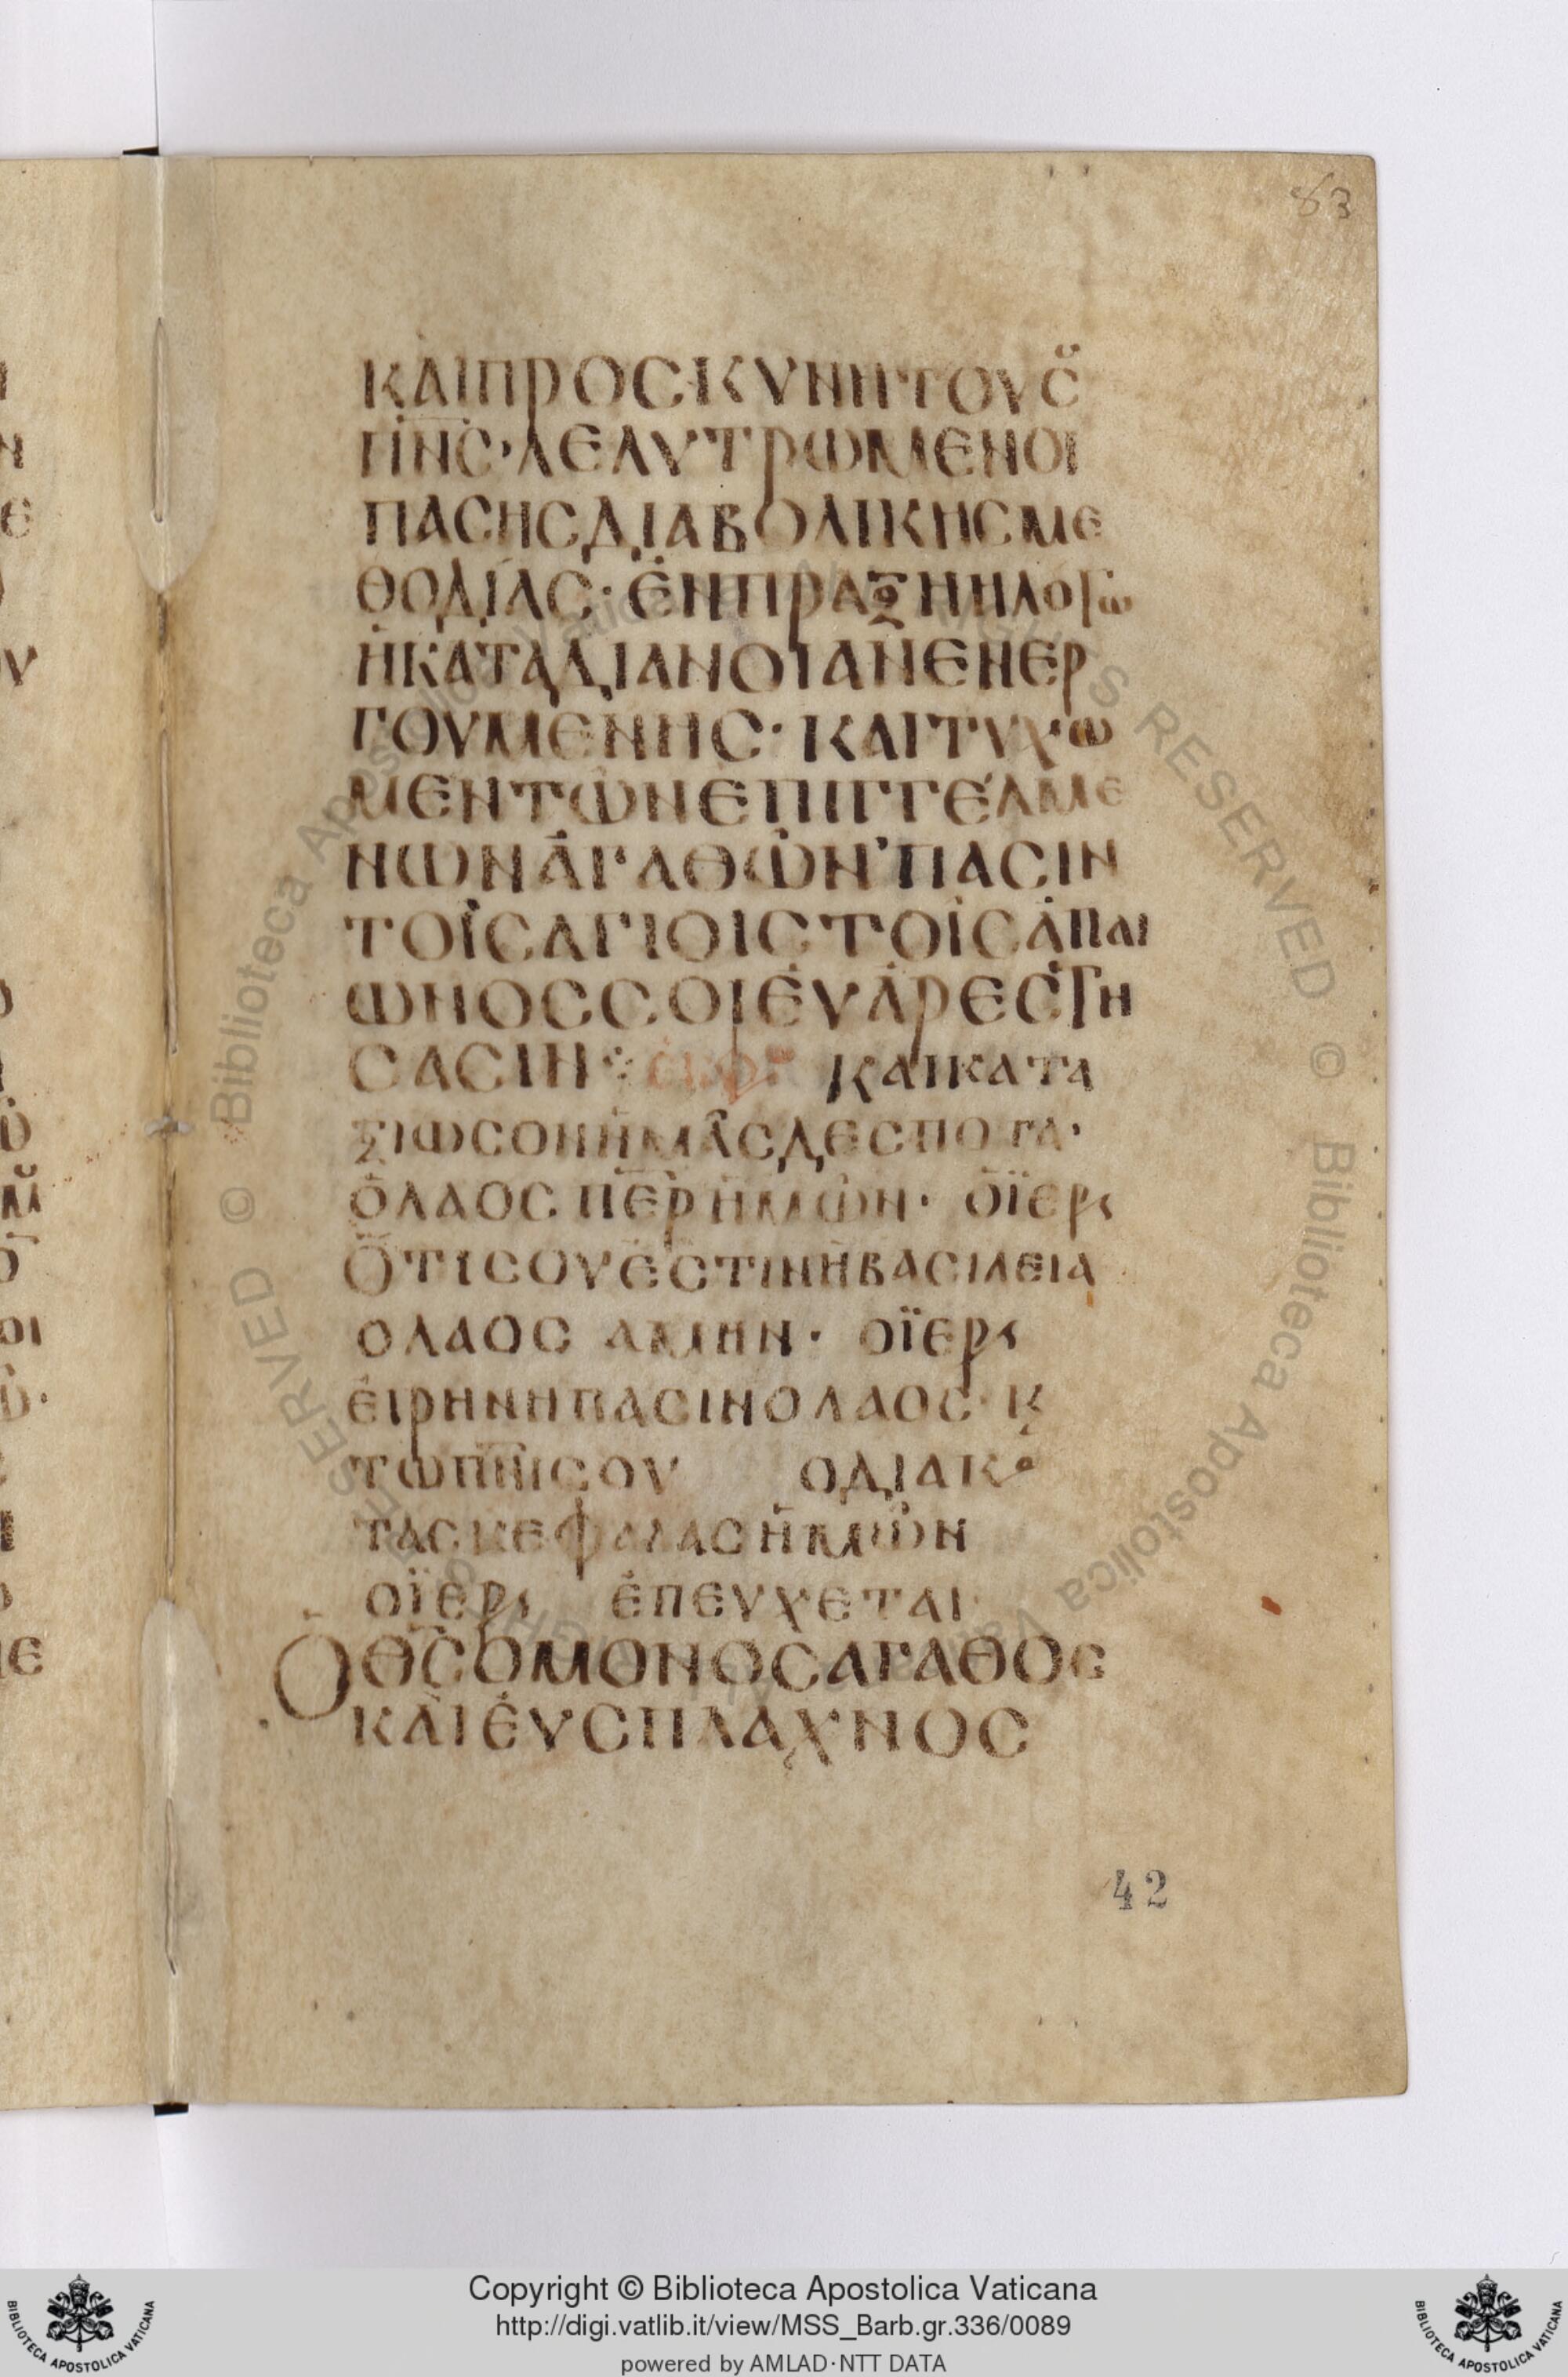 83
ΚΑΙΠΡΟСΚΥΝΗΤΟΥСȢ
ΠΝС·ΛΕΛΥΤΡΩΜΕΝΟΙ
ΠΑСΗСΔΙΑΒΟΛΙΚΗСΜΕ
ΘΟΔΙΑС·ΕΝΠΡΑΞΗΗΛΟΓΩ
ΗΚΑΤΑΔΙΑΝΟΙΑΝΕΝΕΡ
ΓΟΥΜΕΝΗС·ΚΑΙΤΥΧΩ
ΜΕΝΤΩΝΕΠΙΓΓΕΛΜΕ
ΝΩΝΑΓΑΘΩΝ·ΠΑСΙΝ
ΤΟΙСΑΓΙΟΙСΤΟΙСΑΠΑΙ
ΩΝΟССΟΙΕΥΑΡΕСΤΗ
СΑСΙΝ ΚΑΙΚΑΤΑ
ΞΙΩСΟΝΗΜΑСΔΕСΠΟΤΑ·
ΟΛΑΟСΠΕΡΗΜΩΝ· ΟΪΕΡς
ΟΤΙСΟΥΕСΤΙΝΗΒΑСΙΛΕΙΑ
ΟΛΑΟС ΑΜΗΝ· ΟΪΕΡς
ΕΙΡΗΝΗΠΑСΙΝΟΛΑΟС·Κ
ΤΩΠΝΙСΟΥ ΟΔΙΑΚο
ΤΑСΚΕΦΑΛΑСΗΜΩΝ
ΟΪΕΡς ΕΠΕΥΧΕΤΑΙ
ΟΘСΟΜΟΝΟСΑΓΑΘΟС
ΚΑΙΕΥСΠΛΑΧΝΟС
42
Copyright © Biblioteca Apostolica Vaticana
http://digi.vatlib.it/view/MSS_Barb.gr.336/0089
powered by AMLAD·NTT DATA
BIBLIOTECA APOSTOLICA VATICANA
BIBLIOTECA APOSTOLICA VATICANA